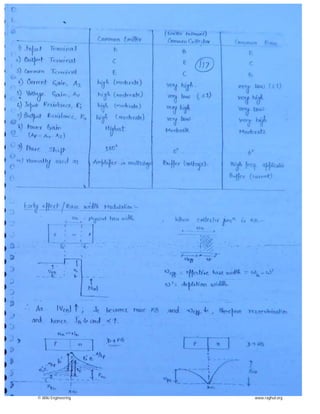 (Emitter follower)
Common Emitter Common Collector Common Base
1) Input Terminal B B E
2) Output Terminal C E C
3) Common Terminal E C B
4) Current Gain, AI high (moderate) very high very low (≤1)
5) Voltage Gain, Av high (moderate) very low (≤1) very high
6) Input Resistance, Ri high (moderate) very high very low
7) Output Resistance, Ro high (moderate) very low very high
8) Power Gain Highest Moderate Moderate
9) Phase Shift 180° 0° 0°
10) Normally used as Amplifier in multistage Buffer (voltage) High freq. application
Buffer (current)
117
Early effect / Base width Modulation:-
When collector junc^n is RB-
Weff = effective base width = WB - W'
W' = depletion width
∴ As |Vcb| ↑, Jc becomes more RB and Weff ↓, therefore recombination
and hence IB ↓ and α↑.
P n
P n
© Wiki Engineering
www.raghul.org